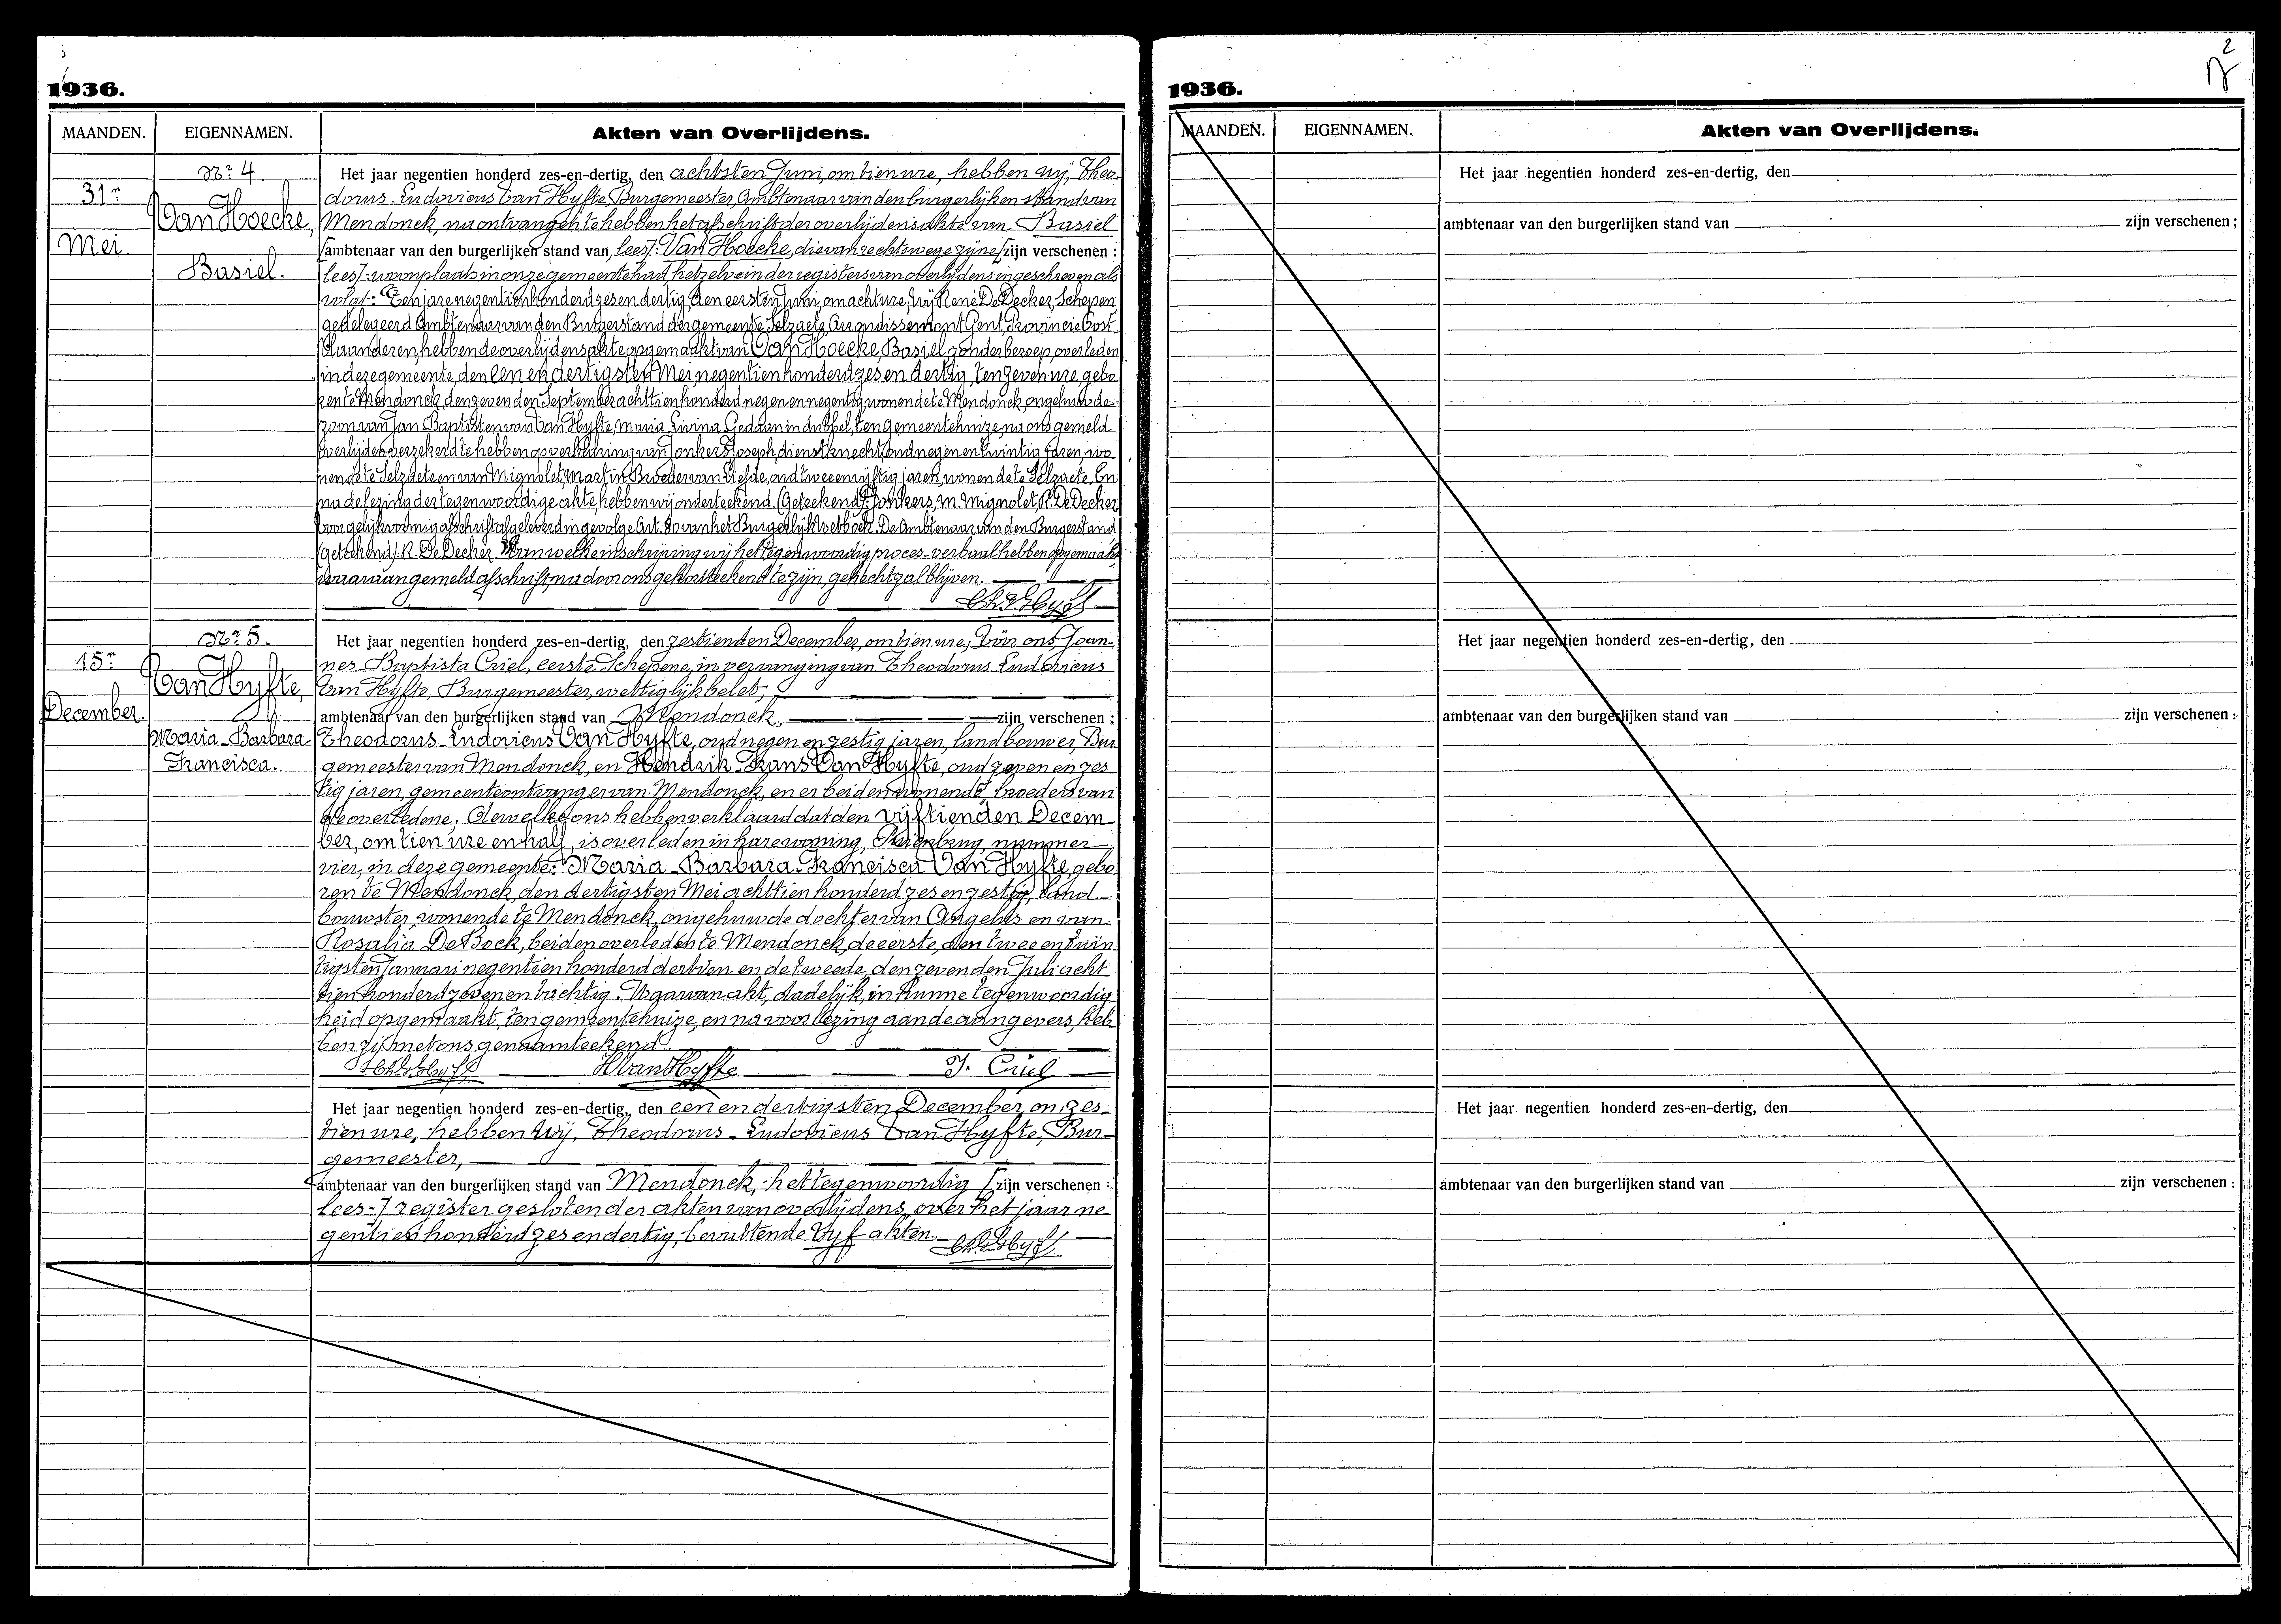 1936.
MAANDEN. EIGENNAMEN. Akten van Overlijdens.
Nr 4
31n
Mei.
Van Hoecke,
Basiel.
Het jaar negentien honderd zes-en-dertig, den achtsten Juni, om tien ure, hebben wij, Theo-
dorus-Ludovicus Van Hyfte, Burgemeester, Ambtenaar van den burgerlijken stand van
Mendonck, na ontvangen te hebben het afschrift der overlijdensakte van Basiel
ambtenaar van den burgerlijken stand van, lees/: Van Hoecke, die van rechtswege zijne /zijn verschenen :
lees/: woonplaats in onze gemeente had, hetzelve in der registers van overlijdens ingeschreven als
volgt: Ten jare negentien honderd zes en dertig, den eersten Juni, om acht ure, Wij René De Decker, Schepen
gedelegeerd Ambtenaar van den Burgerstand der gemeente Selzaete, Arrondissement Gent, Provincie Oost-
Vlaanderen, hebben de overlijdensakte opgemaakt van Van Hoecke, Basiel, zonder beroep, overleden
in deze gemeente, den een en dertigsten Mei, negentien honderd zes en dertig, ten zeven ure, gebo-
ren te Mendonck, den zevenden September achttien honderd negen en negentig, wonende te Mendonck, ongehuwde
zoon van Jan Baptist en van Van Hyfte, Maria Livina. Gedaan in dubbel, ten gemeentehuize, na ons gemeld
overlijden verzekerd te hebben op verklaring van Jonkers Joseph, dienstknecht, oud negen en twintig jaren, wo-
nende te Selzaete en van Mignolet Martin Broeder van Liefde, oud twee en vijftig jaren, wonende te Selzaete. En
na de lezing der tegenwoordige akte, hebben wij onderteekend. (Geteekend) J. Jonkers, M. Mignolet, R. De Decker
Voor gelijkvormig afschrift afgeleverd ingevolge Art. 80 van het Burgerlijk Wetboek. De Ambtenaar van den Burgerstand
(geteekend) R. De Decker. Van welke inschrijving wij het tegenwoordig proces-verbaal hebben opgemaakt,
waaraan gemeld afschrift, na door ons gekortteekend te zijn, gehecht zal blijven.
Nr 5.
15n
December.
Van Hyfte,
Maria-Barbara-
Francisca.
Het jaar negentien honderd zes-en-dertig, den zestienden December, om tien ure, Vóór ons Joan-
nes-Baptista Criel, eerste Schepene, in vervanging van Theodorus-Ludovicus
Van Hyfte, Burgemeester, wettiglijk belet,
ambtenaar van den burgerlijken stand van Mendonck, zijn verschenen :
Theodorus-Ludovicus Van Hyfte, oud negen en zestig jaren, landbouwer, Bur-
gemeester van Mendonck, en Hendrik-Frans Van Hyfte, oud zeven en zes-
tig jaren, gemeenteontvanger van Mendonck, en er beiden wonende, broeders van
de overledene. Dewelke ons hebben verklaard dat den vijftienden Decem-
ber, om tien ure en half, is overleden in hare woning, nummer
vier, in deze gemeente: Maria-Barbara-Francisca Van Hyfte, gebo-
ren te Mendonck, den dertigsten Mei achttien honderd zes en zestig, land-
bouwster, wonende te Mendonck, ongehuwde dochter van Angelus en van
Rosalia De Bock, beiden overleden te Mendonck, de eerste, den twee en twin-
tigsten Januari negentien honderd dertien en de tweede den zevenden Juli acht-
tien honderd zeven en tachtig. Waarvan akt, dadelijk, in hunne tegenwoordig-
heid opgemaakt, ten gemeentehuize, en na voorlezing aan de aangevers, heb-
ben zij met ons genaamteekend.
H Van Hyfte J. Criel
Het jaar negentien honderd zes-en-dertig, den een en dertigsten December, om zes-
tien ure, hebben Wij, Theodorus-Ludovicus Van Hyfte, Bur-
gemeester,
ambtenaar van den burgerlijken stand van Mendonck, het tegenwoordig /zijn verschenen :
lees:/ register gesloten der akten van overlijdens, over het jaar ne-
gentien honderd zes en dertig, bevattende vyf akten.
2
1936.
MAANDEN. EIGENNAMEN. Akten van Overlijdens.
Het jaar negentien honderd zes-en-dertig, den
ambtenaar van den burgerlijken stand van zijn verschenen :
Het jaar negentien honderd zes-en-dertig, den
ambtenaar van den burgerlijken stand van zijn verschenen :
Het jaar negentien honderd zes-en-dertig, den
ambtenaar van den burgerlijken stand van zijn verschenen :